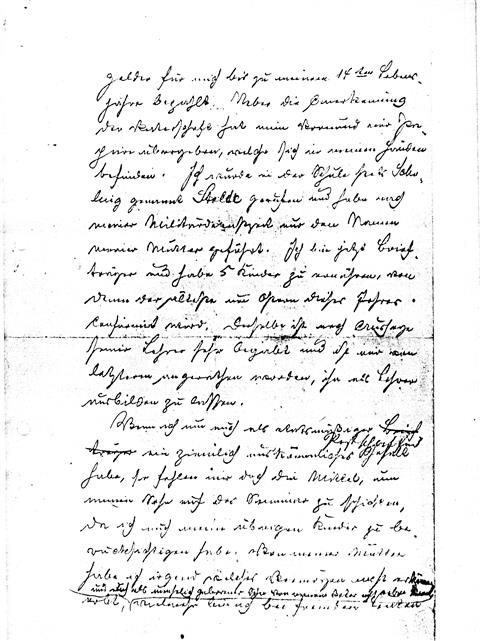 gelder für mich bis zu meinem 14ten Lebens-
jahre bezahlt. Ueber die Anerkennung
der Vaterschaft hat mein Vormund ein Pa-
pier übergeben, welche sich in meinen Händen
befinden. Ich wurde in der Schule stets
genannt Stoldt gerufen und habe nach
meiner Militärdienstzeit nur den Namen
meiner Mutter geführt. Ich bin jetzt Brief-
träger und habe 5 Kinder zu ernähren, von
denen der älteste um Ostern dieses Jahres
confirmirt wird. Derselbe ist nach Aussage
seiner Lehrer sehr begabt und ist mir von
letzteren angerathen worden, ihn als Lehrer
ausbilden zu lassen.
Wenn ich nun auch als etatsmäßiger Brief
träger ein ziemlich auskömmliches Gehalt
habe, so fehlen mir doch die Mittel, um
meinen Sohn auf das Seminar zu schicken,
da ich auch meine übrigen Kinder zu be-
rücksichtigen habe. Von meiner Mutter
habe ich irgend welches Vermögen nicht
und auch als unehelich geborener Sohn von meinem Vater
erbt, vielmehr bin ich bei fremden Leuten